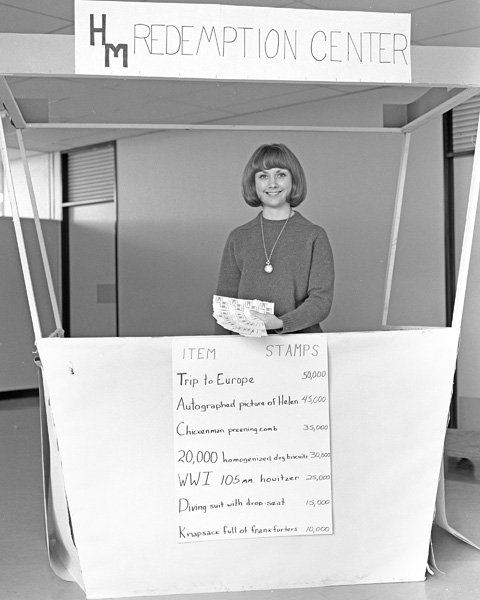 HM REDEMPTION CENTER
ITEM STAMPS
Trip to Europe 50,000
Autographed picture of Helen 45,000
Chickenman preening comb 35,000
20,000 homogenized dog biscuits 30,000
WWI 105mm howitzer 25,000
Diving suit with drop-seat 15,000
Knapsack full of frankfurters 10,000